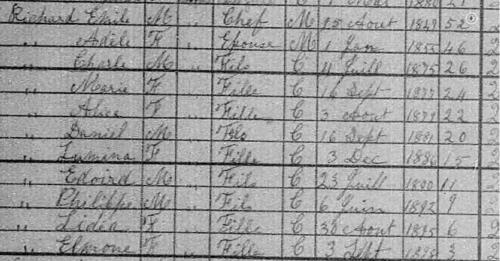 Richard Emile M " Chef M 15 Aout 1849 52
" Adèle F " Epouse M 1 Jan 1855 46
" Charle M " Fils C 11 Juill 1875 26
" Marie F " Fille C 16 Sept 1877 24
" Alice F " Fille C 3 Aout 1879 22
" Daniel M " Fils C 16 Sept 1881 20
" Lumina F " Fille C 3 Dec 1886 15
" Edoird M " Fils C 23 Juill 1890 11
" Philippe M " Fils C 6 Juin 1892 9
" Lidea F " Fille C 30 Aout 1895 6
" F " Fille C 3 Sept 1898 3